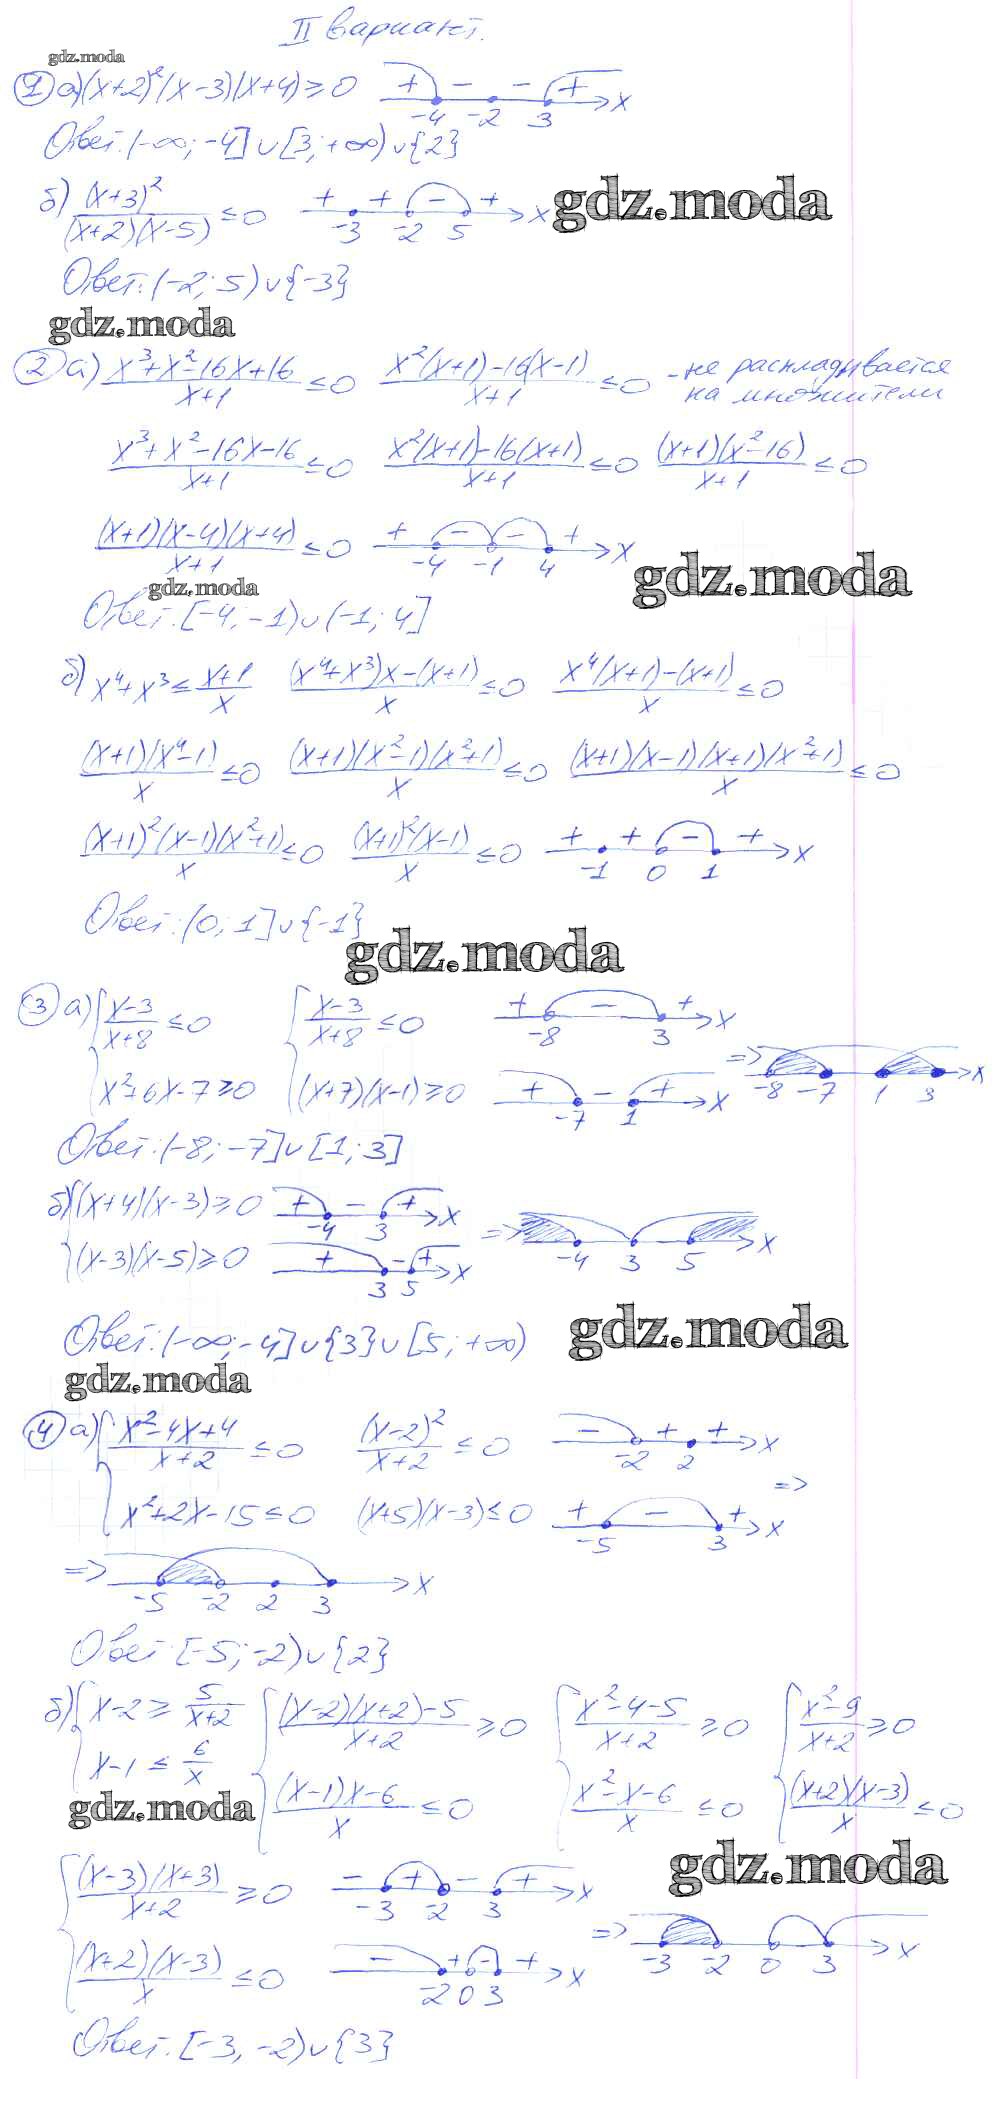 II вариант.
gdz.moda
1 а) (x+2)²(x-3)(x+4) ≥ 0 + - - + x
-4 -2 3
Ответ: (-∞; -4] ∪ [3; +∞) ∪ {2}
б) (x+3)²/((x+2)(x-5)) ≤ 0 + + - + x
-3 -2 5
gdz.moda
Ответ: (-2; 5) ∪ {-3}
gdz.moda
2 а) (x³+x²-16x+16)/(x+1) ≤ 0 (x²(x+1)-16(x-1))/(x+1) ≤ 0 - не раскладывается
на множители
(x³+x²-16x-16)/(x+1) ≤ 0 (x²(x+1)-16(x+1))/(x+1) ≤ 0 ((x+1)(x²-16))/(x+1) ≤ 0
((x+1)(x-4)(x+4))/(x+1) ≤ 0 + - - + x
-4 -1 4
gdz.moda
gdz.moda
Ответ: [-4; -1) ∪ (-1; 4]
б) x⁴+x³ ≤ (x+1)/x ((x⁴+x³)x-(x+1))/x ≤ 0 (x⁴(x+1)-(x+1))/x ≤ 0
((x+1)(x⁴-1))/x ≤ 0 ((x+1)(x²-1)(x²+1))/x ≤ 0 ((x+1)(x-1)(x+1)(x²+1))/x ≤ 0
((x+1)²(x-1)(x²+1))/x ≤ 0 ((x+1)²(x-1))/x ≤ 0 + + - + x
-1 0 1
Ответ: (0; 1] ∪ {-1}
gdz.moda
3 а) { (x-3)/(x+8) ≤ 0 { (x-3)/(x+8) ≤ 0 + - + x
-8 3
x²+6x-7 ≥ 0 (x+7)(x-1) ≥ 0 + - + x
-7 1
=> -8 -7 1 3 x
Ответ: (-8; -7] ∪ [1; 3]
б) { (x+4)(x-3) ≥ 0 + - + x
-4 3
(x-3)(x-5) ≥ 0 + - + x
3 5
=> -4 3 5 x
Ответ: (-∞; -4] ∪ {3} ∪ [5; +∞)
gdz.moda
gdz.moda
4 а) { (x²-4x+4)/(x+2) ≤ 0 (x-2)²/(x+2) ≤ 0 - + + x
-2 2
x²+2x-15 ≤ 0 (x+5)(x-3) ≤ 0 + - + x =>
-5 3
=> -5 -2 2 3 x
Ответ: [-5; -2) ∪ {2}
б) { x-2 ≥ 5/(x+2) { ((x-2)(x+2)-5)/(x+2) ≥ 0 { (x²-4-5)/(x+2) ≥ 0 { (x²-9)/(x+2) ≥ 0
x-1 ≤ 6/x ((x-1)x-6)/x ≤ 0 (x²-x-6)/x ≤ 0 ((x+2)(x-3))/x ≤ 0
gdz.moda
gdz.moda
{ ((x-3)(x+3))/(x+2) ≥ 0 - + - + x
-3 -2 3
((x+2)(x-3))/x ≤ 0 - + - + x
-2 0 3
=> -3 -2 0 3 x
Ответ: [-3, -2) ∪ {3}